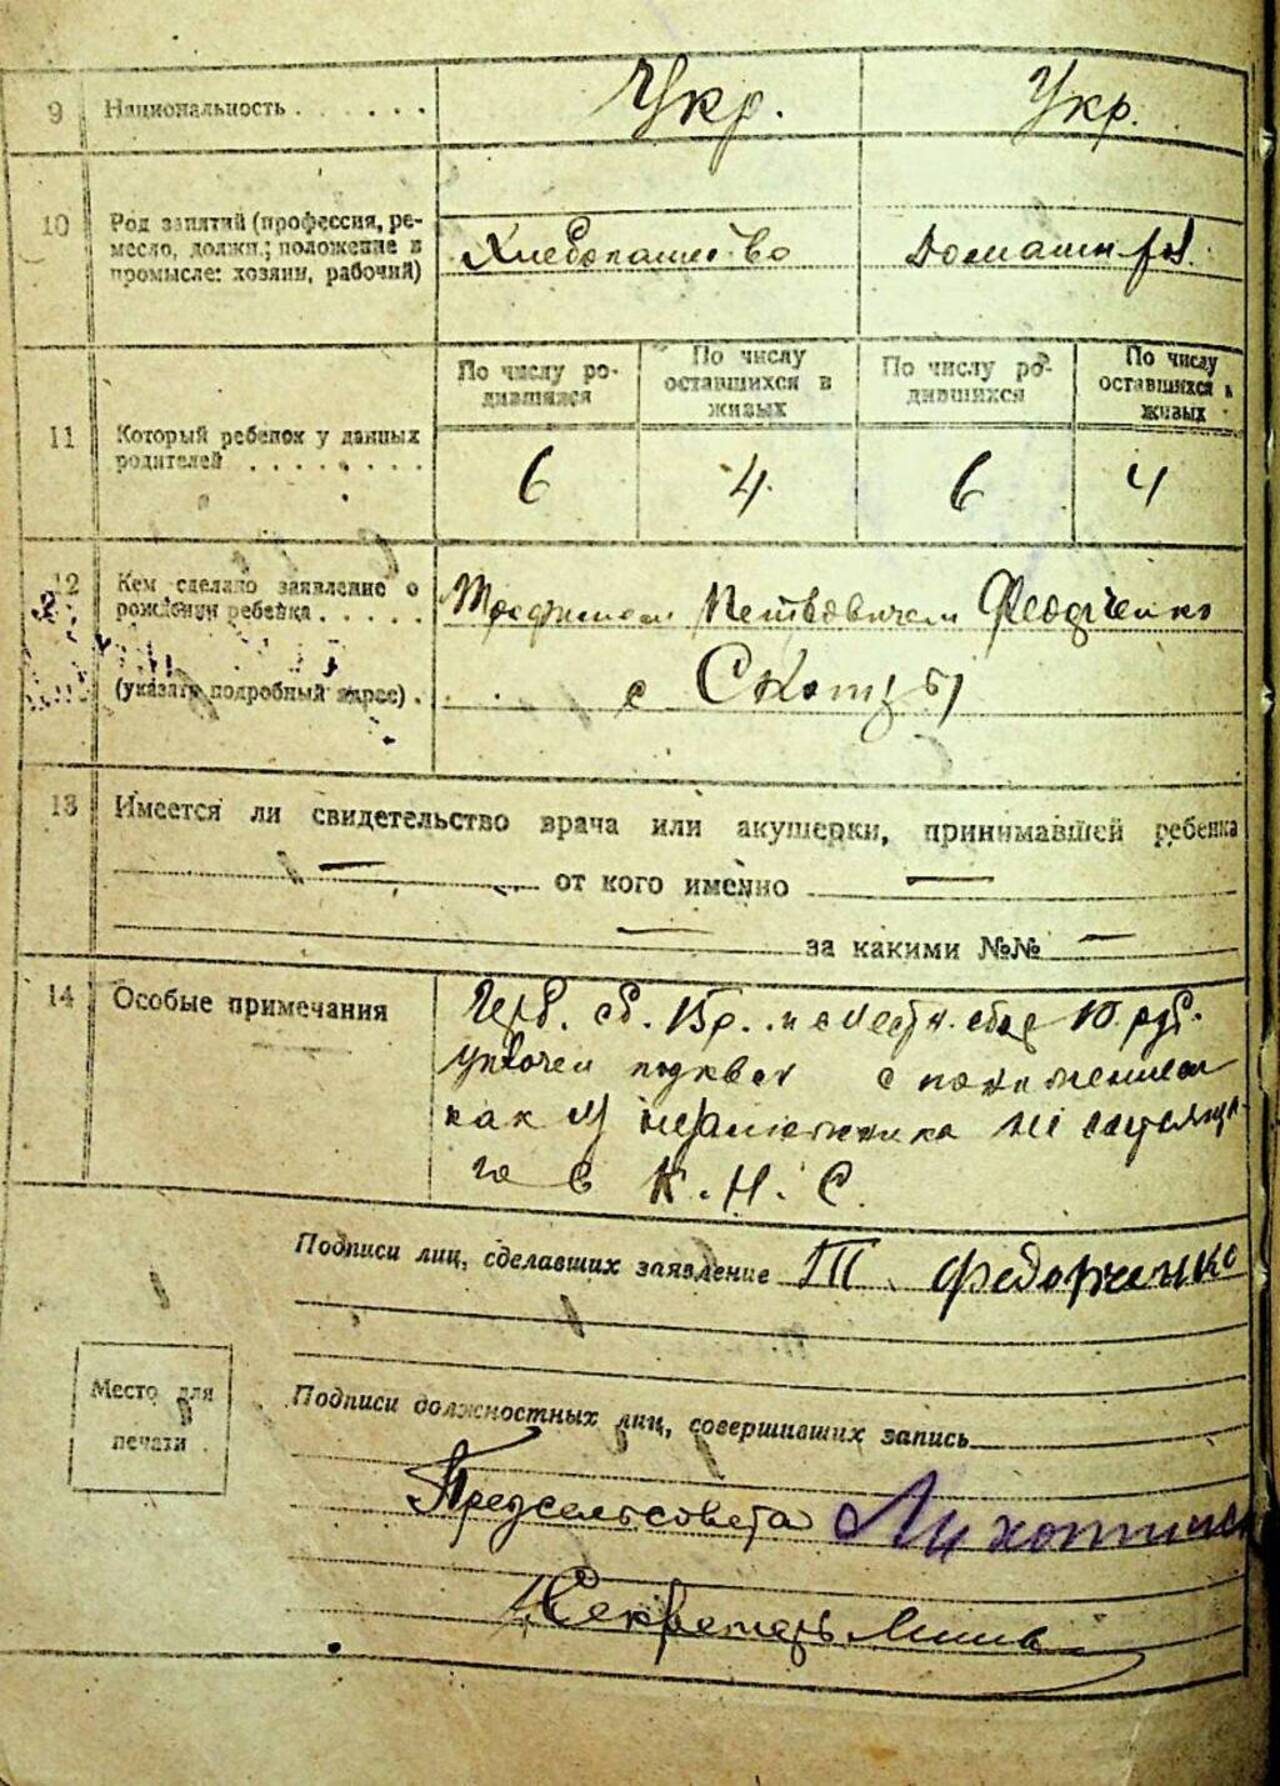 9 Национальность . . . . . . Укр. Укр.
10 Род занятий (профессия, ре-
месло, должн.; положение в
промысле: хозяин, рабочий)
Хлебопашество Домашн.
11 Который ребенок у данных
родителей . . . . . . . .
По числу ро-
дившихся
По числу
оставшихся в
живых
По числу ро-
дившихся
По числу
оставшихся в
живых
6 4. 6 4
12 Кем сделано заявление о
рождении ребенка . . . . .
(указать подробный адрес) .
Трофимом Петровичем Федорченко
с
13 Имеется ли свидетельство врача или акушерки, принимавшей ребенка
— от кого именно —
— за какими №№ —
14 Особые примечания
Герб. сб. 15 р. и с местн. сбор 10 руб.
как
го в К. Н. С.
Подписи лиц, сделавших заявление Т. Федорченко
Место для
печати
Подписи должностных лиц, совершивших запись
Предсельсовета
Секретарь